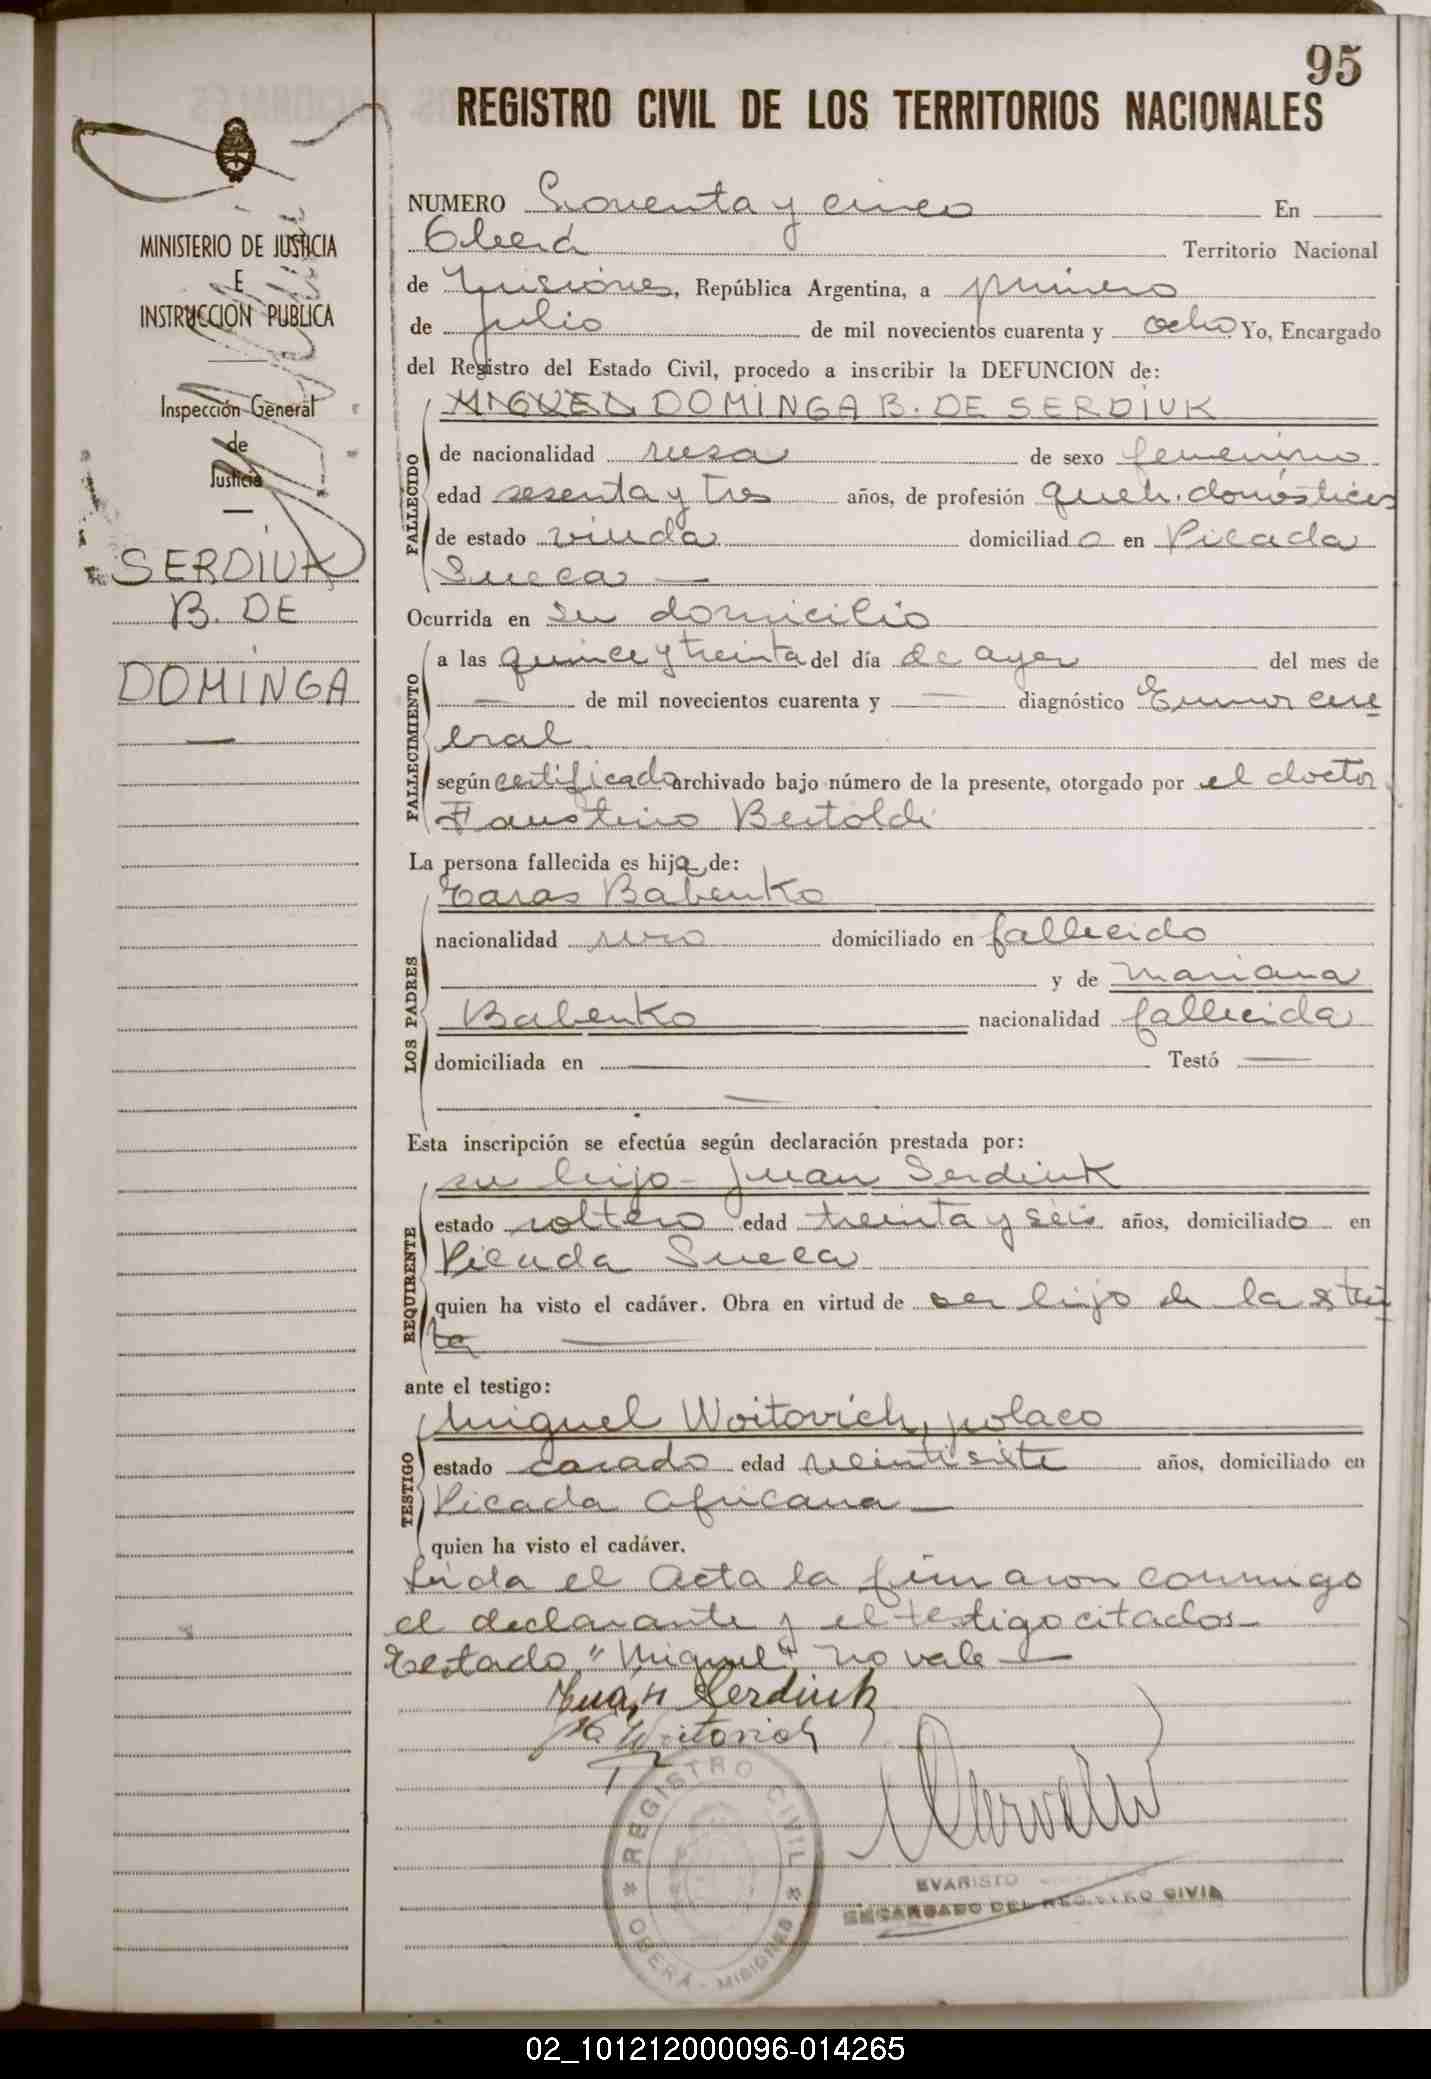 95
REGISTRO CIVIL DE LOS TERRITORIOS NACIONALES
MINISTERIO DE JUSTICIA
E
INSTRUCCION PUBLICA
Inspección General
de
Justicia
SERDIUK
B. DE
DOMINGA
NUMERO Noventa y cinco En
Oberá Territorio Nacional
de Misiones, República Argentina, a primero
de Julio de mil novecientos cuarenta y ocho Yo, Encargado
del Registro del Estado Civil, procedo a inscribir la DEFUNCION de:
MIGUEL DOMINGA B. DE SERDIUK
FALLECIDO
de nacionalidad rusa de sexo femenino
edad sesenta y tres años, de profesión queh. domésticos
de estado viuda domiciliada en Picada
Sueca
Ocurrida en su domicilio
FALLECIMIENTO
a las quince y treinta del día de ayer del mes de
de mil novecientos cuarenta y diagnóstico Tumor cere
bral
según certificado archivado bajo número de la presente, otorgado por el doctor
Faustino Bertoldi
La persona fallecida es hija de:
LOS PADRES
Taras Babenko
nacionalidad ruso domiciliado en fallecido
y de Mariana
Babenko nacionalidad fallecida
domiciliada en Testó
Esta inscripción se efectúa según declaración prestada por:
REQUIRENTE
su hijo - Juan Serdiuk
estado soltero edad treinta y seis años, domiciliado en
Picada Sueca
quien ha visto el cadáver. Obra en virtud de ser hijo de la
ante el testigo:
TESTIGO
Miguel Woitovich, polaco
estado casado edad veintisiete años, domiciliado en
Picada Africana
quien ha visto el cadáver.
Leída el Acta la firmaron conmigo
el declarante y el testigo citados
Testado "Miguel" no vale
Juan Serdiuk
Woitovich
REGISTRO CIVIL
OBERÁ - MISIONES
EVARISTO
ENCARGADO DEL REGISTRO CIVIL
02_101212000096-014265